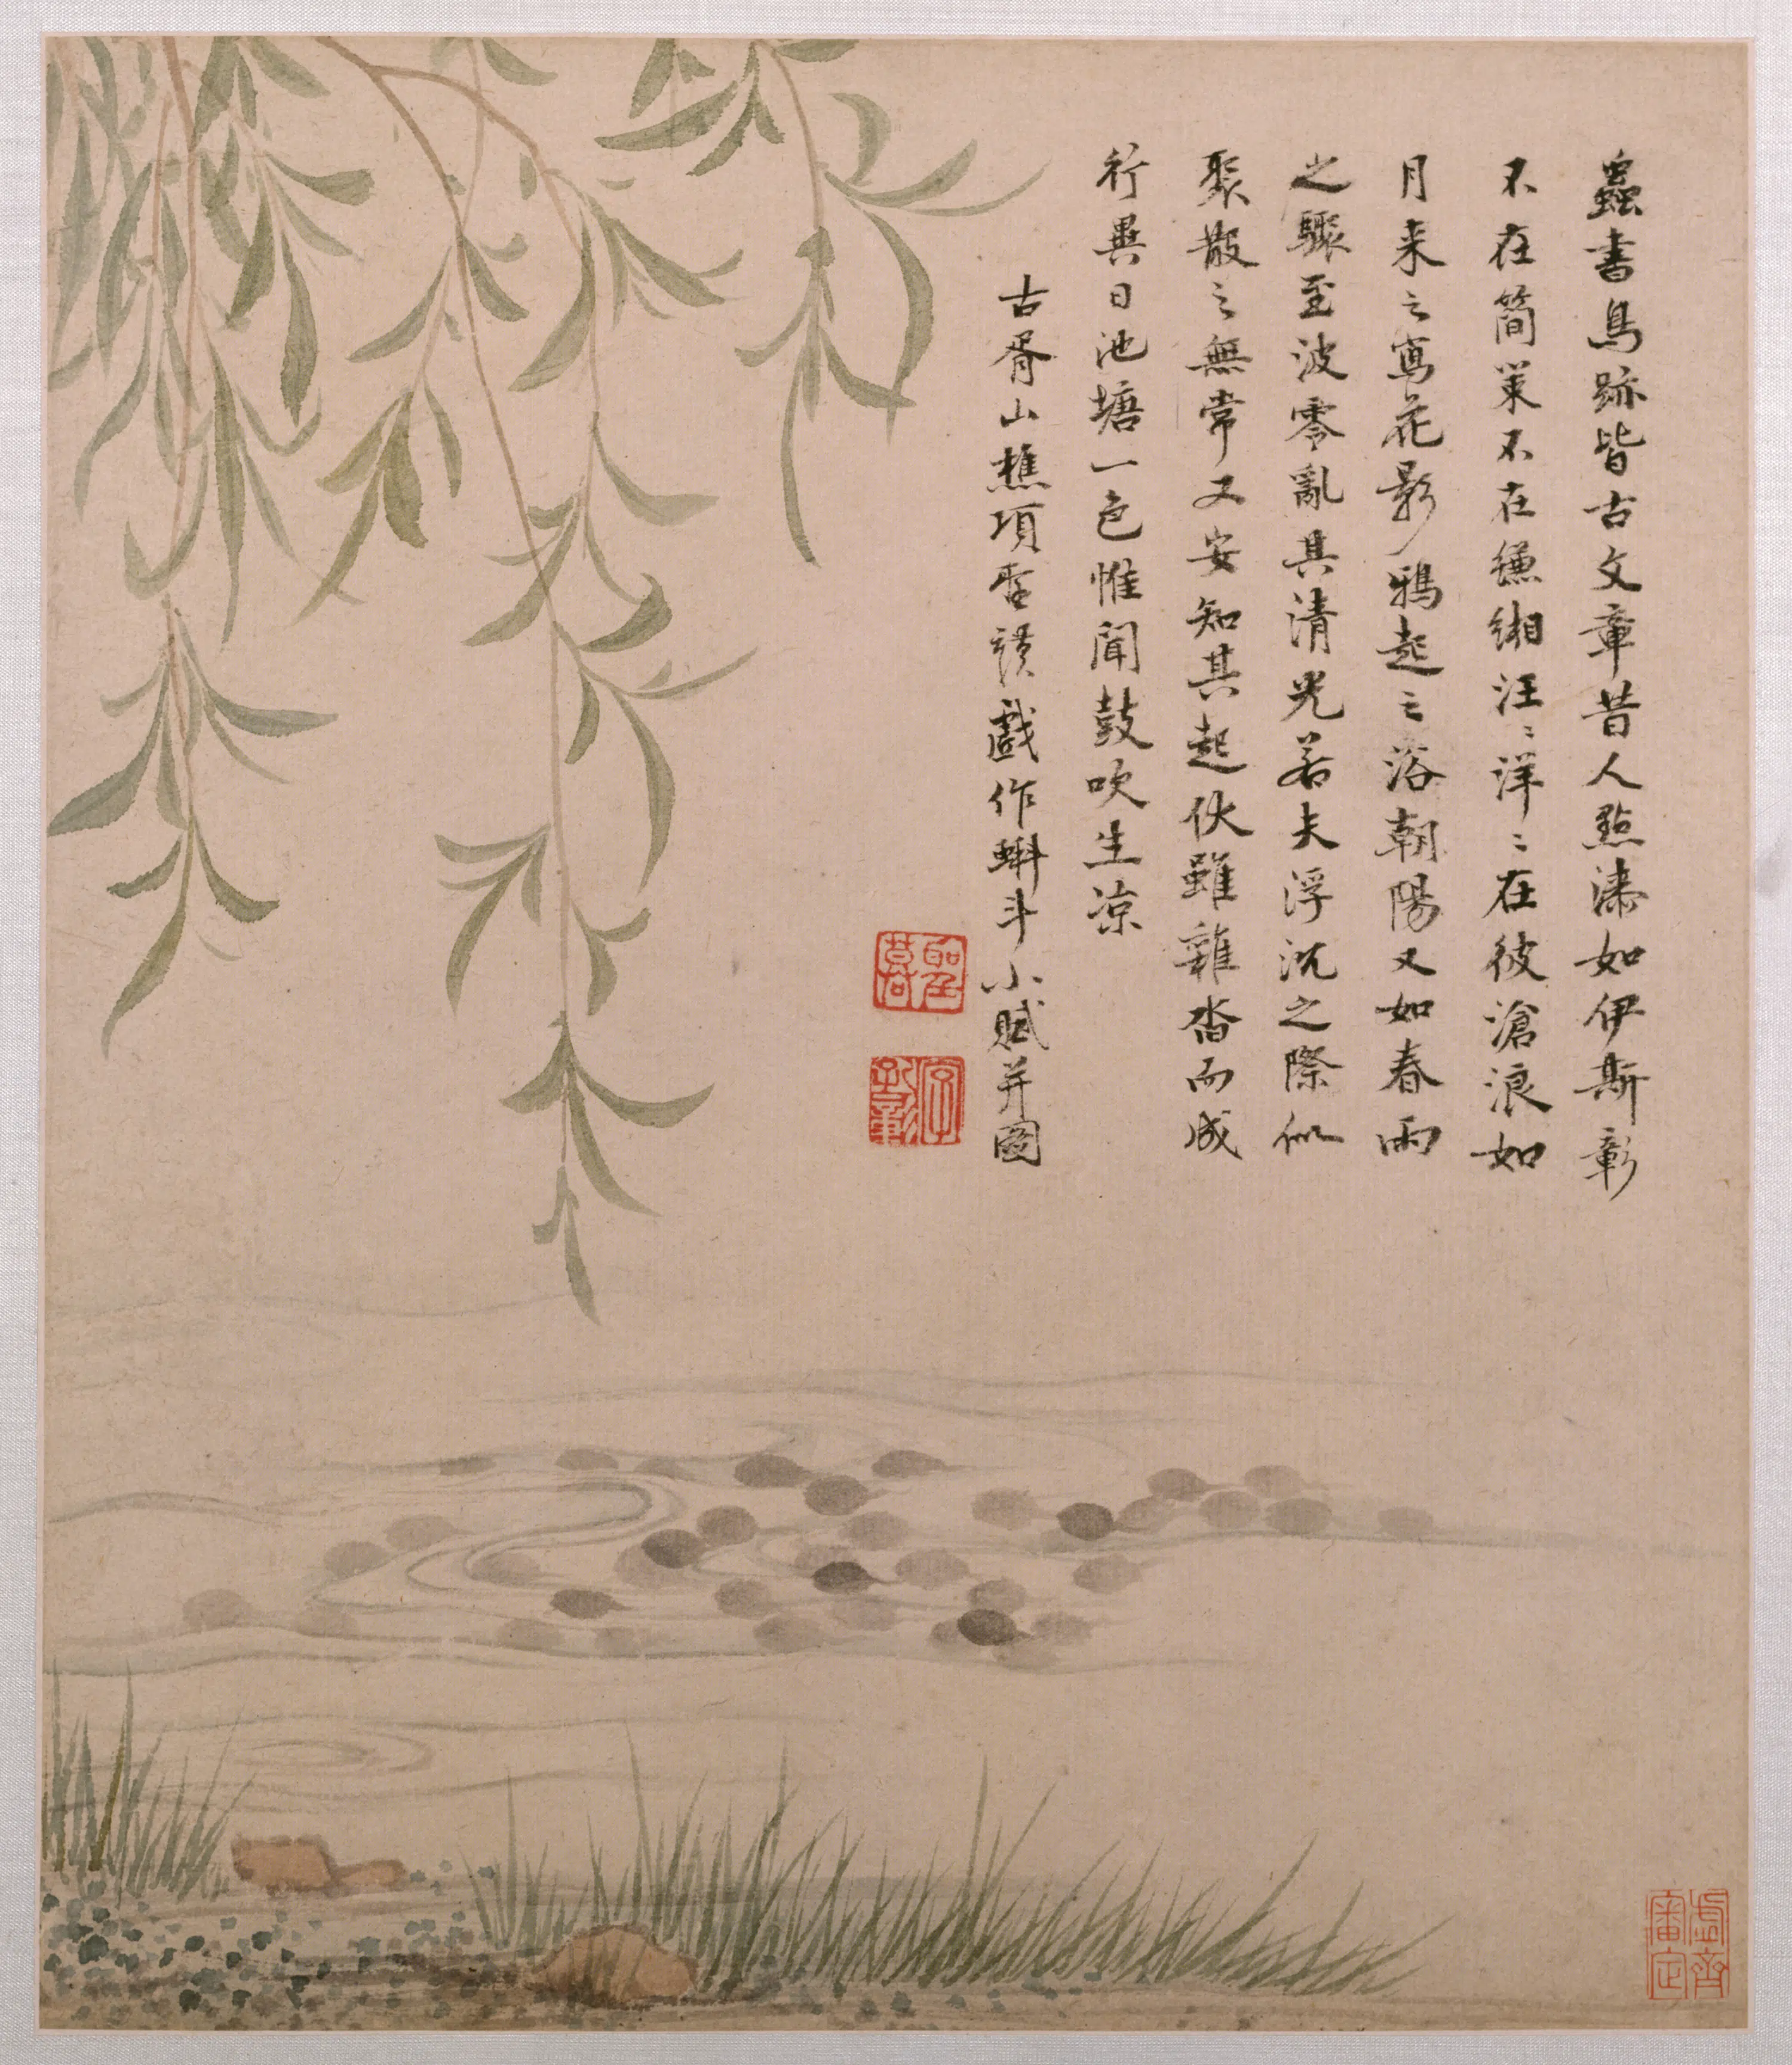 蟲書鳥跡皆古文章昔人點漆如伊斯彰
不在簡策不在縑緗汪〻洋〻在彼滄浪如
月来之寫花影鴉起之浴朝陽又如春雨
之驟至波零亂其清光若夫浮沉之際似
聚散之無常又安知其起伏雖雜沓而成
行異日池塘一色惟聞鼓吹生凉
古胥山樵項聖謨戲作蝌斗小賦并圖
項聖謨
孔彰
虛齋審定